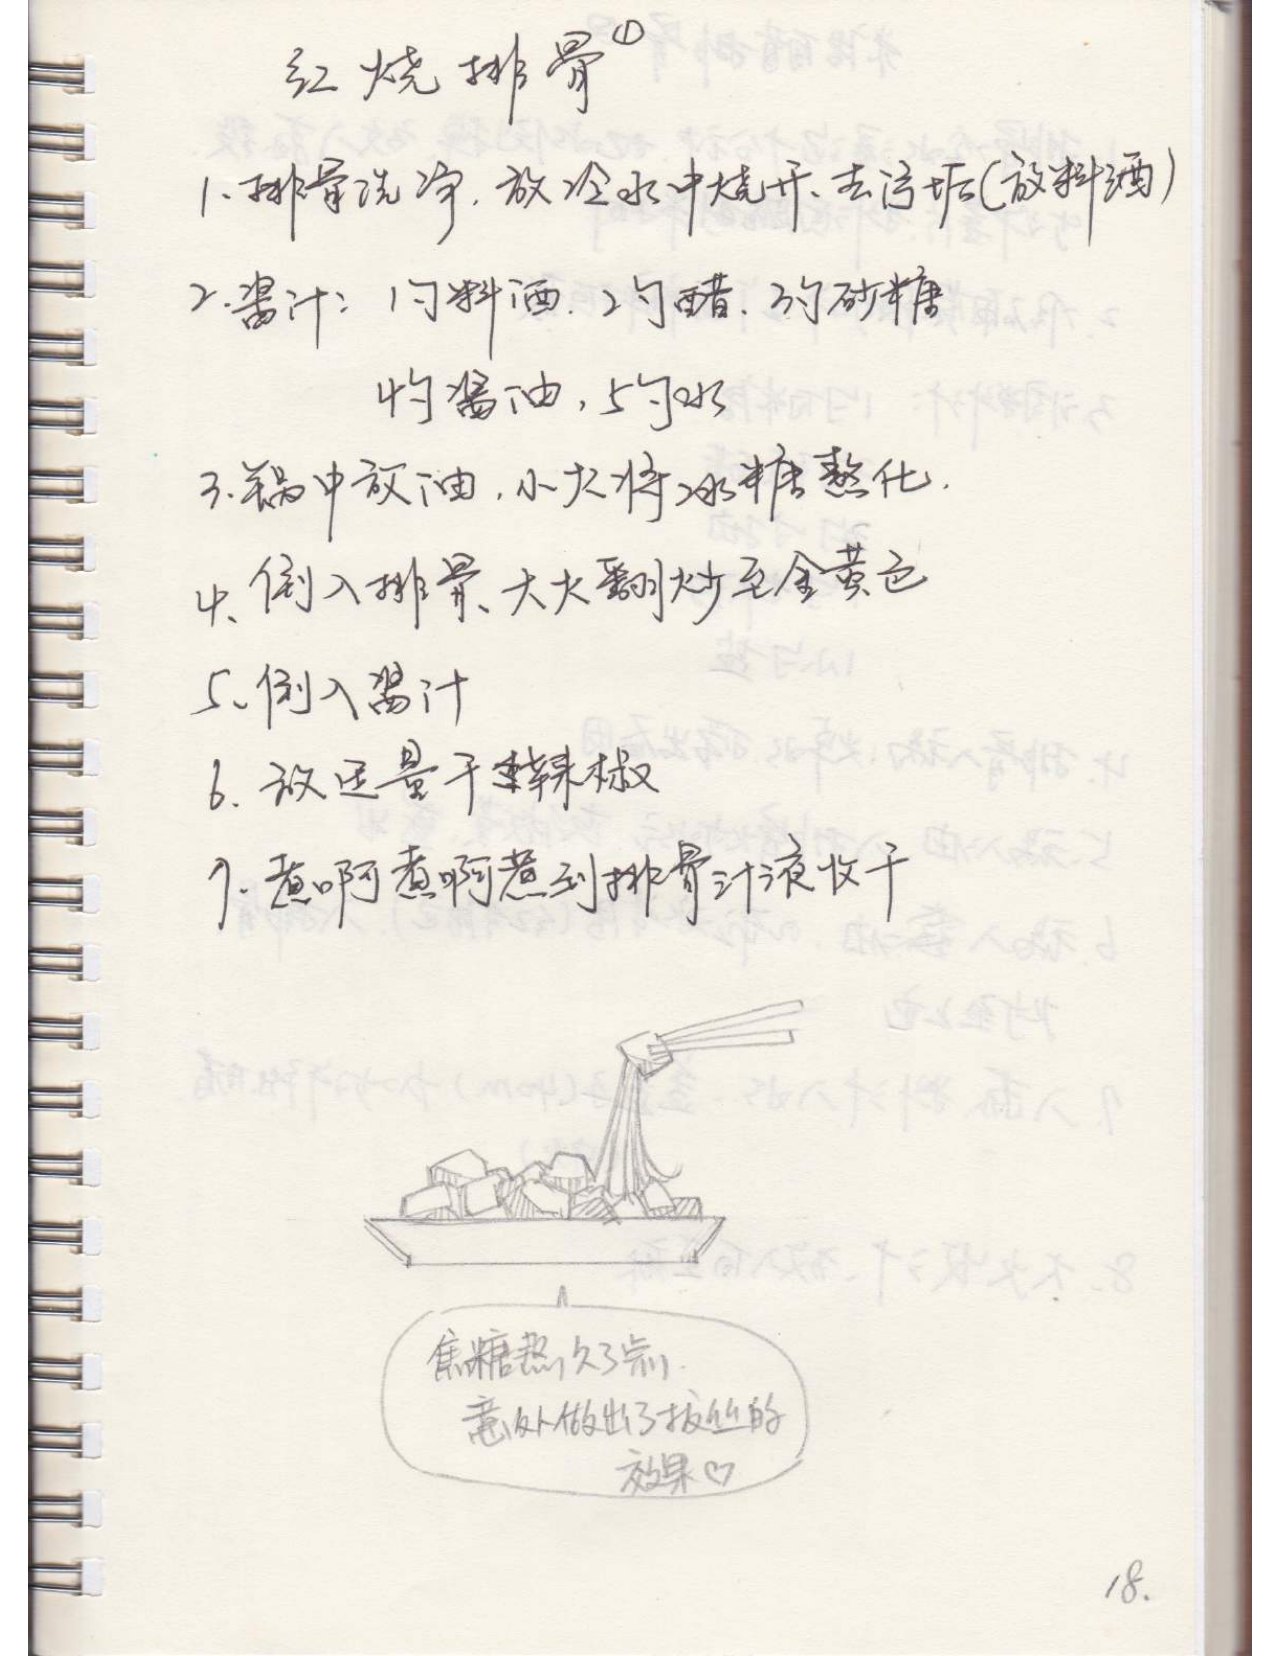 红烧排骨①
1、排骨洗净，放冷水中烧开、去污垢（放料酒）
2.酱汁：1勺料酒、2勺醋、3勺砂糖
4勺酱油，5勺水
3.锅中放油，小火将冰糖熬化.
4、倒入排骨、大火翻炒至金黄色
5、倒入酱汁
6.放适量干辣椒
7.煮啊煮啊煮到排骨汁液收干
焦糖熬久了点，
意外做出了拔丝的
效果♡
18.